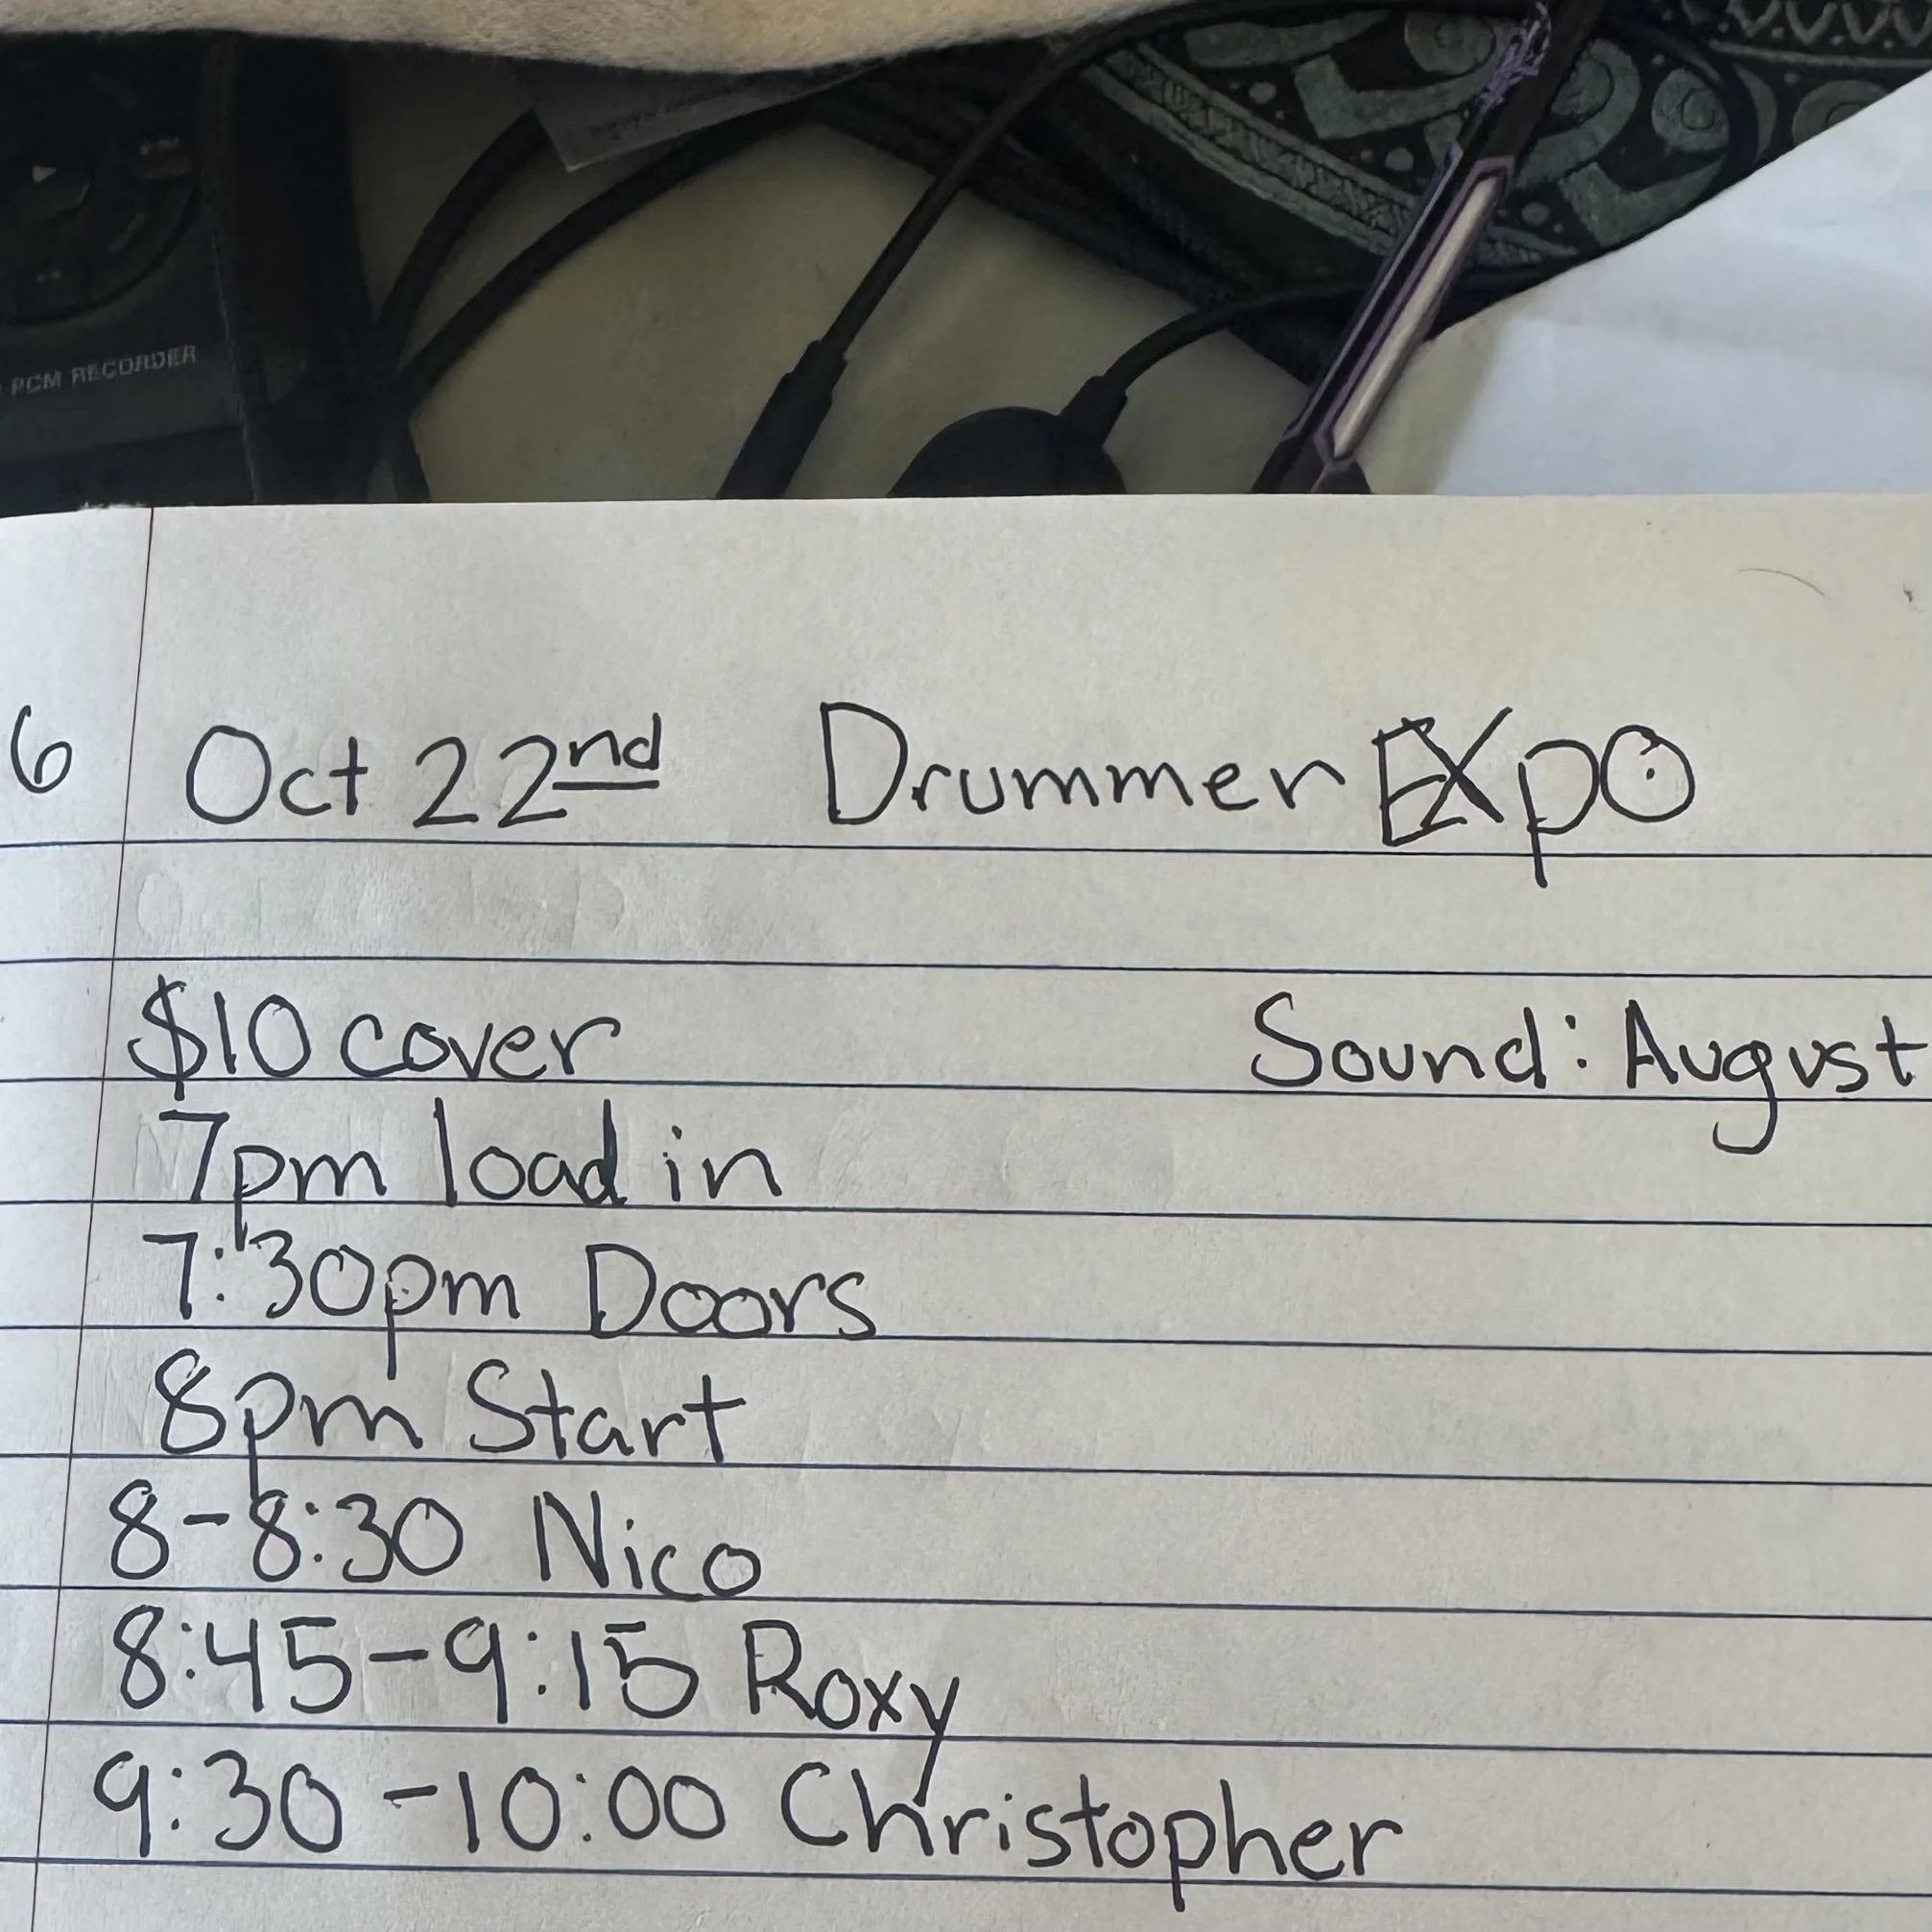 PCM RECORDER
6 Oct 22nd Drummer EXpo
$10 cover Sound: August
7pm load in
7:30pm Doors
8pm Start
8-8:30 Nico
8:45-9:15 Roxy
9:30-10:00 Christopher